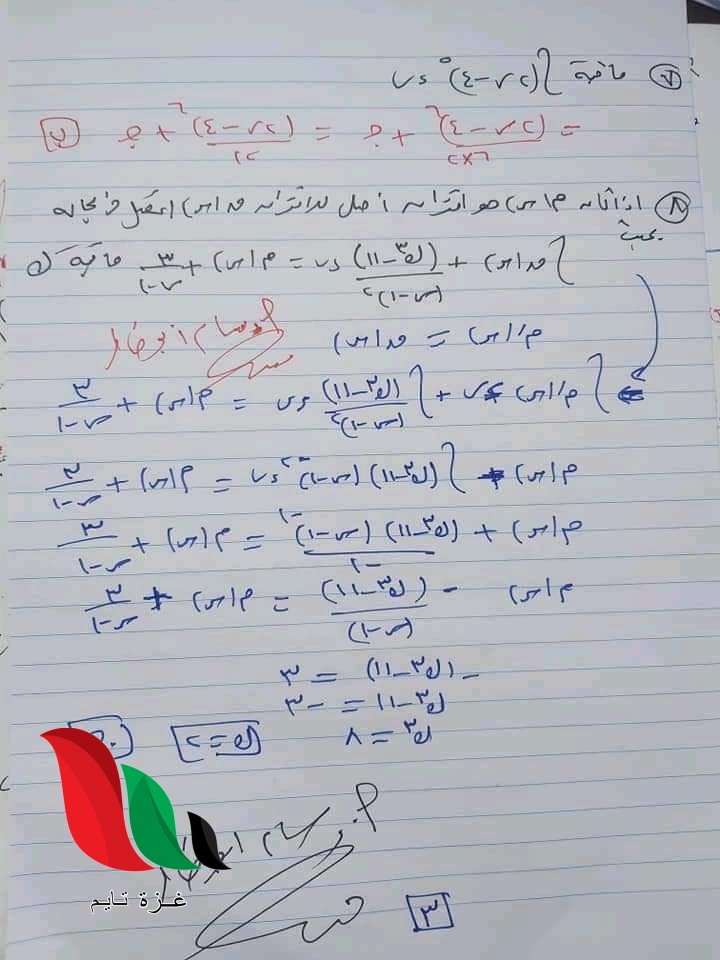 ٧) ما قيمة ∫(٢س − ٤)^٥ ءس
= (٢س − ٤)^٦ / (٢×٦) + جـ = (٢س − ٤)^٦ / ١٢ + جـ ب
٨) اذا كان م(س) هو اقتران أصل للاقتران ق(س) المتصل في مجاله
بحيث
∫ق(س) + (ك^٣ − ١١) / (س − ١)^٢ ءس = م(س) + ٣ / (س − ١) ما قيمة ك
م/(س) = ق(س)
∫م/(س) ءس + ∫(ك^٣ − ١١) / (س − ١)^٢ ءس = م(س) + ٣ / (س − ١)
م(س) + ∫(ك^٣ − ١١)(س − ١)^−٢ ءس = م(س) + ٣ / (س − ١)
م(س) + (ك^٣ − ١١)(س − ١)^−١ / −١ = م(س) + ٣ / (س − ١)
م(س) − (ك^٣ − ١١) / (س − ١) = م(س) + ٣ / (س − ١)
−(ك^٣ − ١١) = ٣
ك^٣ − ١١ = −٣
ك^٣ = ٨ ك = ٢
غزة تايم
٣